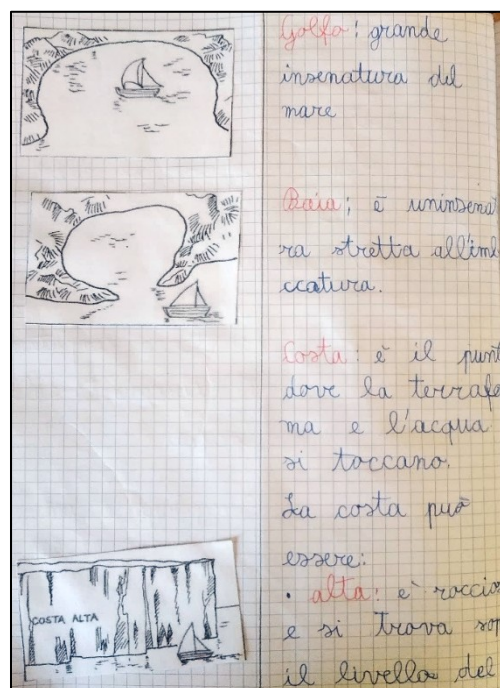 Golfo: grande
insenatura del
mare
Baia: è uninsena
ra stretta all'im
ccatura.
Costa: è il punt
dove la terrafe
ma e l'acqua
si toccano.
La costa può
essere:
COSTA ALTA
• alta: è roccio
e si trova sop
il livello del